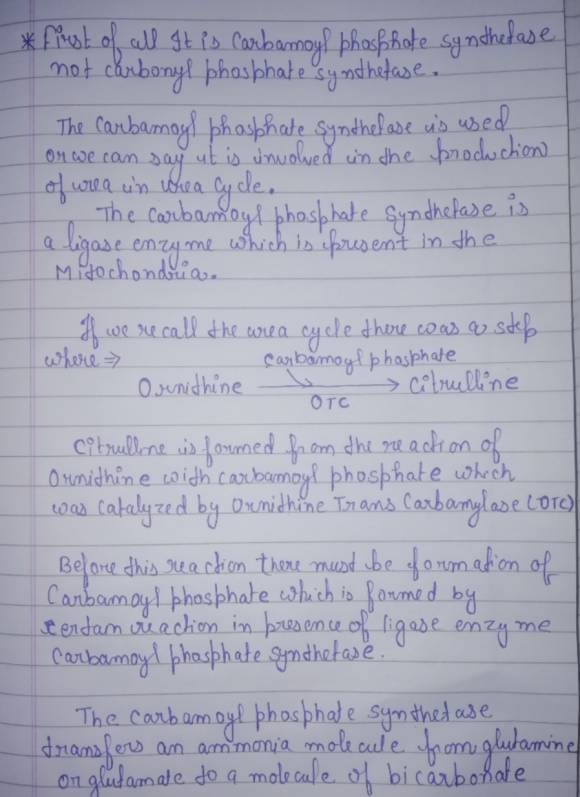 * First of all It is Carbamoyl phosphate synthetase
not carbonyl phosphate synthetase.
The Carbamoyl phosphate synthetase is used
or we can say it is involved in the production
of urea in urea cycle.
The Carbamoyl phosphate synthetase is
a ligase enzyme which is present in the
Mitochondria.
If we recall the urea cycle there was a step
where ⇒ Carbamoyl phosphate
Ornithine → Citrulline
OTC
Citrulline is formed from the reaction of
Ornithine with carbamoyl phosphate which
was catalyzed by Ornithine Trans Carbamylase (OTC)
Before this reaction there must be formation of
Carbamoyl phosphate which is formed by
certain reaction in presence of ligase enzyme
Carbamoyl phosphate synthetase.
The carbamoyl phosphate synthetase
transfers an ammonia molecule from glutamine
or glutamate to a molecule of bicarbonate